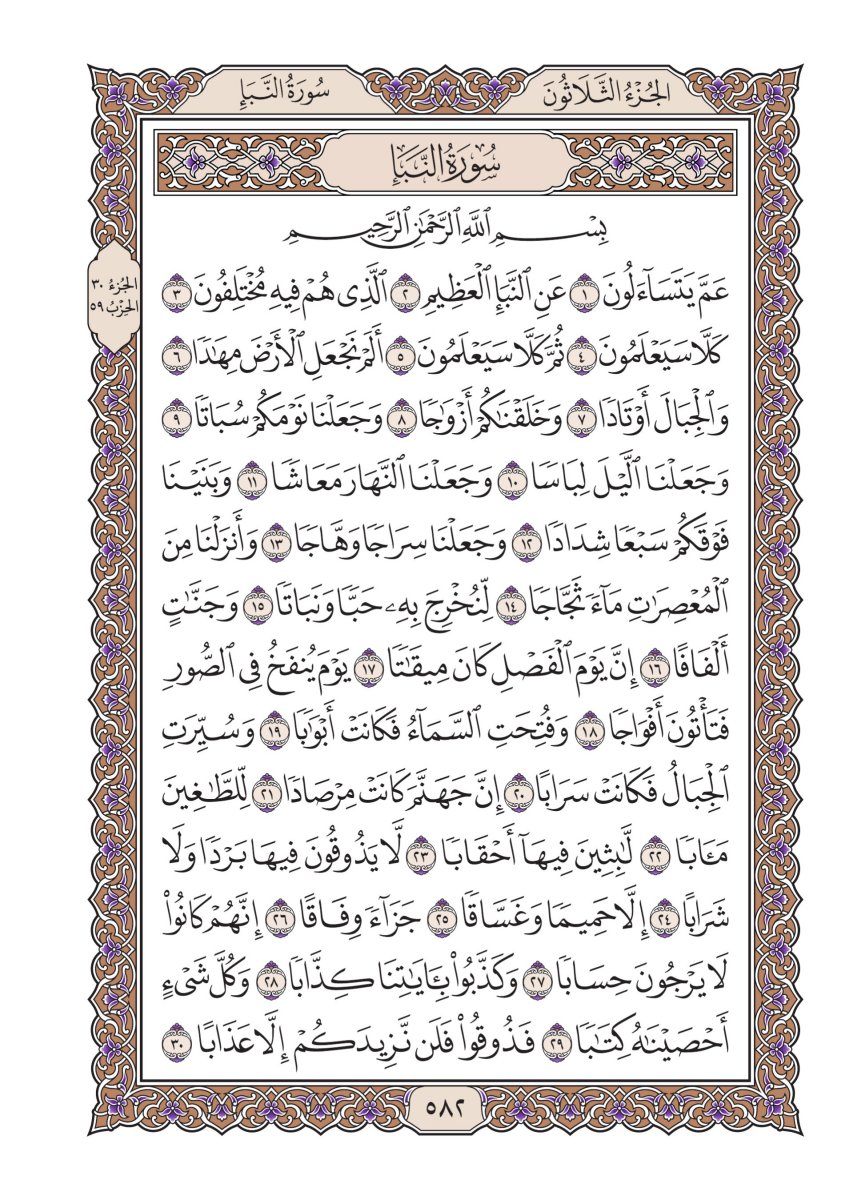 الجُزْءُ الثَّلَاثُونَ
سُورَةُ النَّبَإِ
سُورَةُ النَّبَإِ
بِسْمِ ٱللَّهِ ٱلرَّحْمَٰنِ ٱلرَّحِيمِ
الجُزءُ ٣٠
الحِزْبُ ٥٩
عَمَّ يَتَسَآءَلُونَ ١ عَنِ ٱلنَّبَإِ ٱلْعَظِيمِ ٢ ٱلَّذِى هُمْ فِيهِ مُخْتَلِفُونَ ٣
كَلَّا سَيَعْلَمُونَ ٤ ثُمَّ كَلَّا سَيَعْلَمُونَ ٥ أَلَمْ نَجْعَلِ ٱلْأَرْضَ مِهَٰدًا ٦
وَٱلْجِبَالَ أَوْتَادًا ٧ وَخَلَقْنَٰكُمْ أَزْوَٰجًا ٨ وَجَعَلْنَا نَوْمَكُمْ سُبَاتًا ٩
وَجَعَلْنَا ٱلَّيْلَ لِبَاسًا ١٠ وَجَعَلْنَا ٱلنَّهَارَ مَعَاشًا ١١ وَبَنَيْنَا
فَوْقَكُمْ سَبْعًا شِدَادًا ١٢ وَجَعَلْنَا سِرَاجًا وَهَّاجًا ١٣ وَأَنزَلْنَا مِنَ
ٱلْمُعْصِرَٰتِ مَآءً ثَجَّاجًا ١٤ لِّنُخْرِجَ بِهِۦ حَبًّا وَنَبَاتًا ١٥ وَجَنَّٰتٍ
أَلْفَافًا ١٦ إِنَّ يَوْمَ ٱلْفَصْلِ كَانَ مِيقَٰتًا ١٧ يَوْمَ يُنفَخُ فِى ٱلصُّورِ
فَتَأْتُونَ أَفْوَاجًا ١٨ وَفُتِحَتِ ٱلسَّمَآءُ فَكَانَتْ أَبْوَٰبًا ١٩ وَسُيِّرَتِ
ٱلْجِبَالُ فَكَانَتْ سَرَابًا ٢٠ إِنَّ جَهَنَّمَ كَانَتْ مِرْصَادًا ٢١ لِّلطَّٰغِينَ
مَـَٔابًا ٢٢ لَّٰبِثِينَ فِيهَآ أَحْقَابًا ٢٣ لَّا يَذُوقُونَ فِيهَا بَرْدًا وَلَا
شَرَابًا ٢٤ إِلَّا حَمِيمًا وَغَسَّاقًا ٢٥ جَزَآءً وِفَاقًا ٢٦ إِنَّهُمْ كَانُوا۟
لَا يَرْجُونَ حِسَابًا ٢٧ وَكَذَّبُوا۟ بِـَٔايَٰتِنَا كِذَّابًا ٢٨ وَكُلَّ شَىْءٍ
أَحْصَيْنَٰهُ كِتَٰبًا ٢٩ فَذُوقُوا۟ فَلَن نَّزِيدَكُمْ إِلَّا عَذَابًا ٣٠
٥٨٢